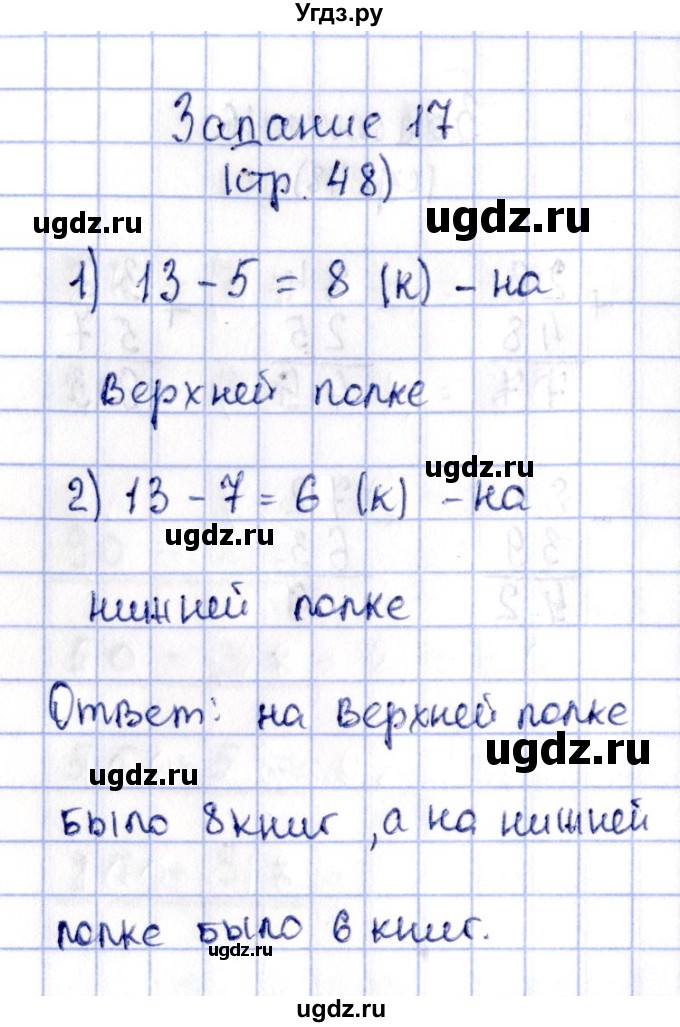 Угдз.ру
Задание 17
(стр. 48)
ugdz.ru
ugdz.ru
1) 13 - 5 = 8 (к) - на
верхней полке
ugdz.ru
2) 13 - 7 = 6 (к) - на
ugdz.ru
нижней полке
Ответ: на верхней полке
ugdz.ru
ugdz.ru
было 8 книг, а на нижней
полке было 6 книг.
ugdz.ru
ugdz.ru